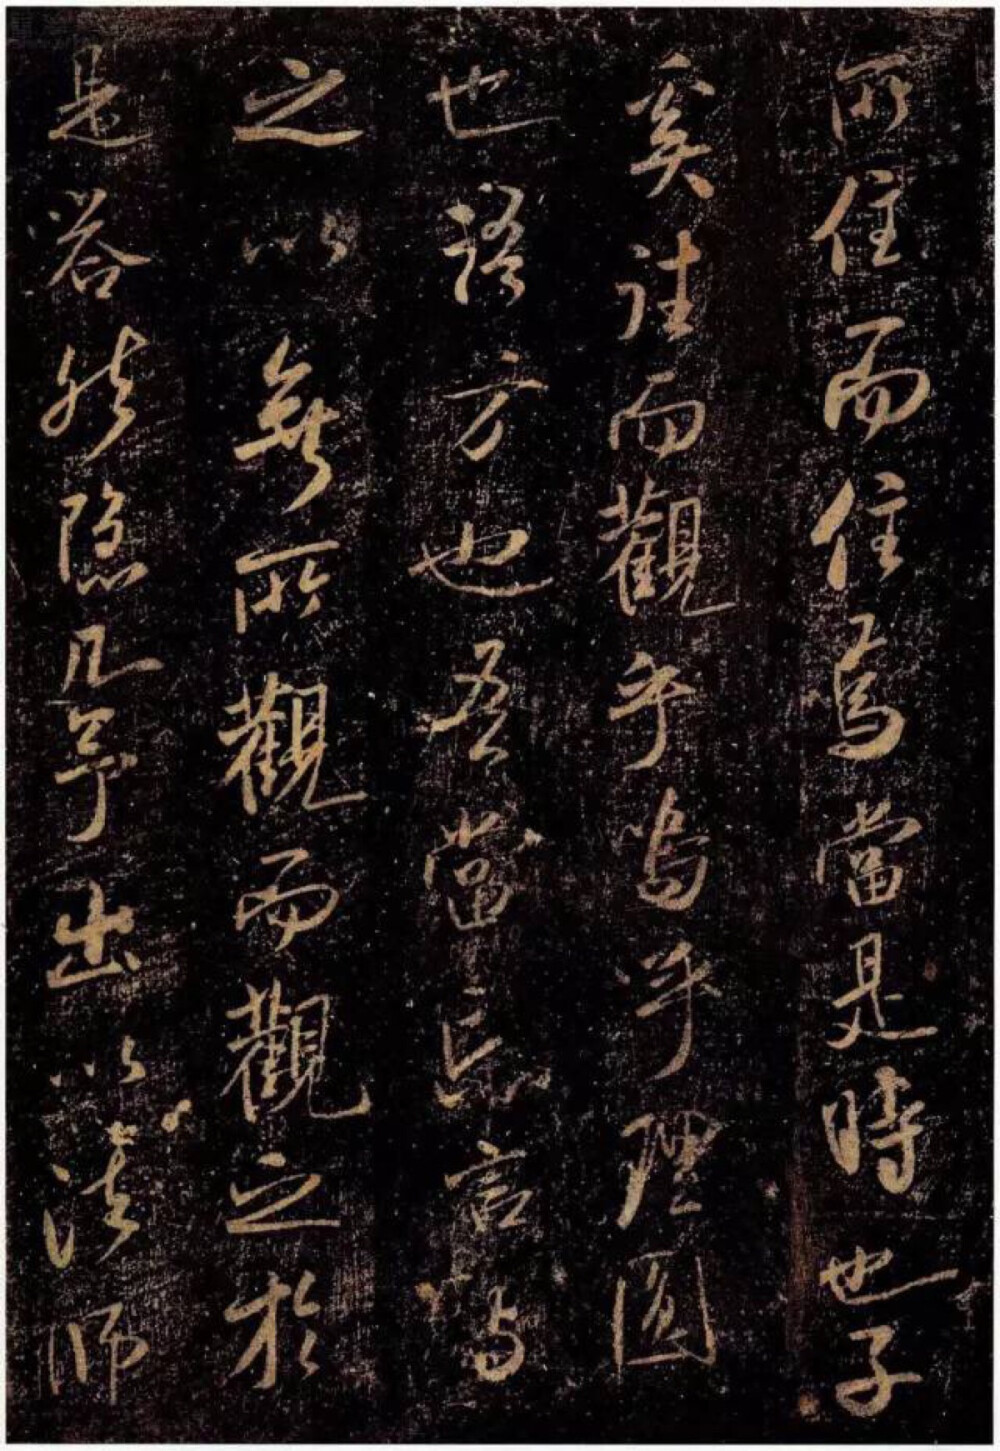 所住而住焉當是時也子
奚往而觀乎嗚乎理圓
也語方也吾當忘言與
之以無所觀而觀之於
是荅然隱几予出以法師